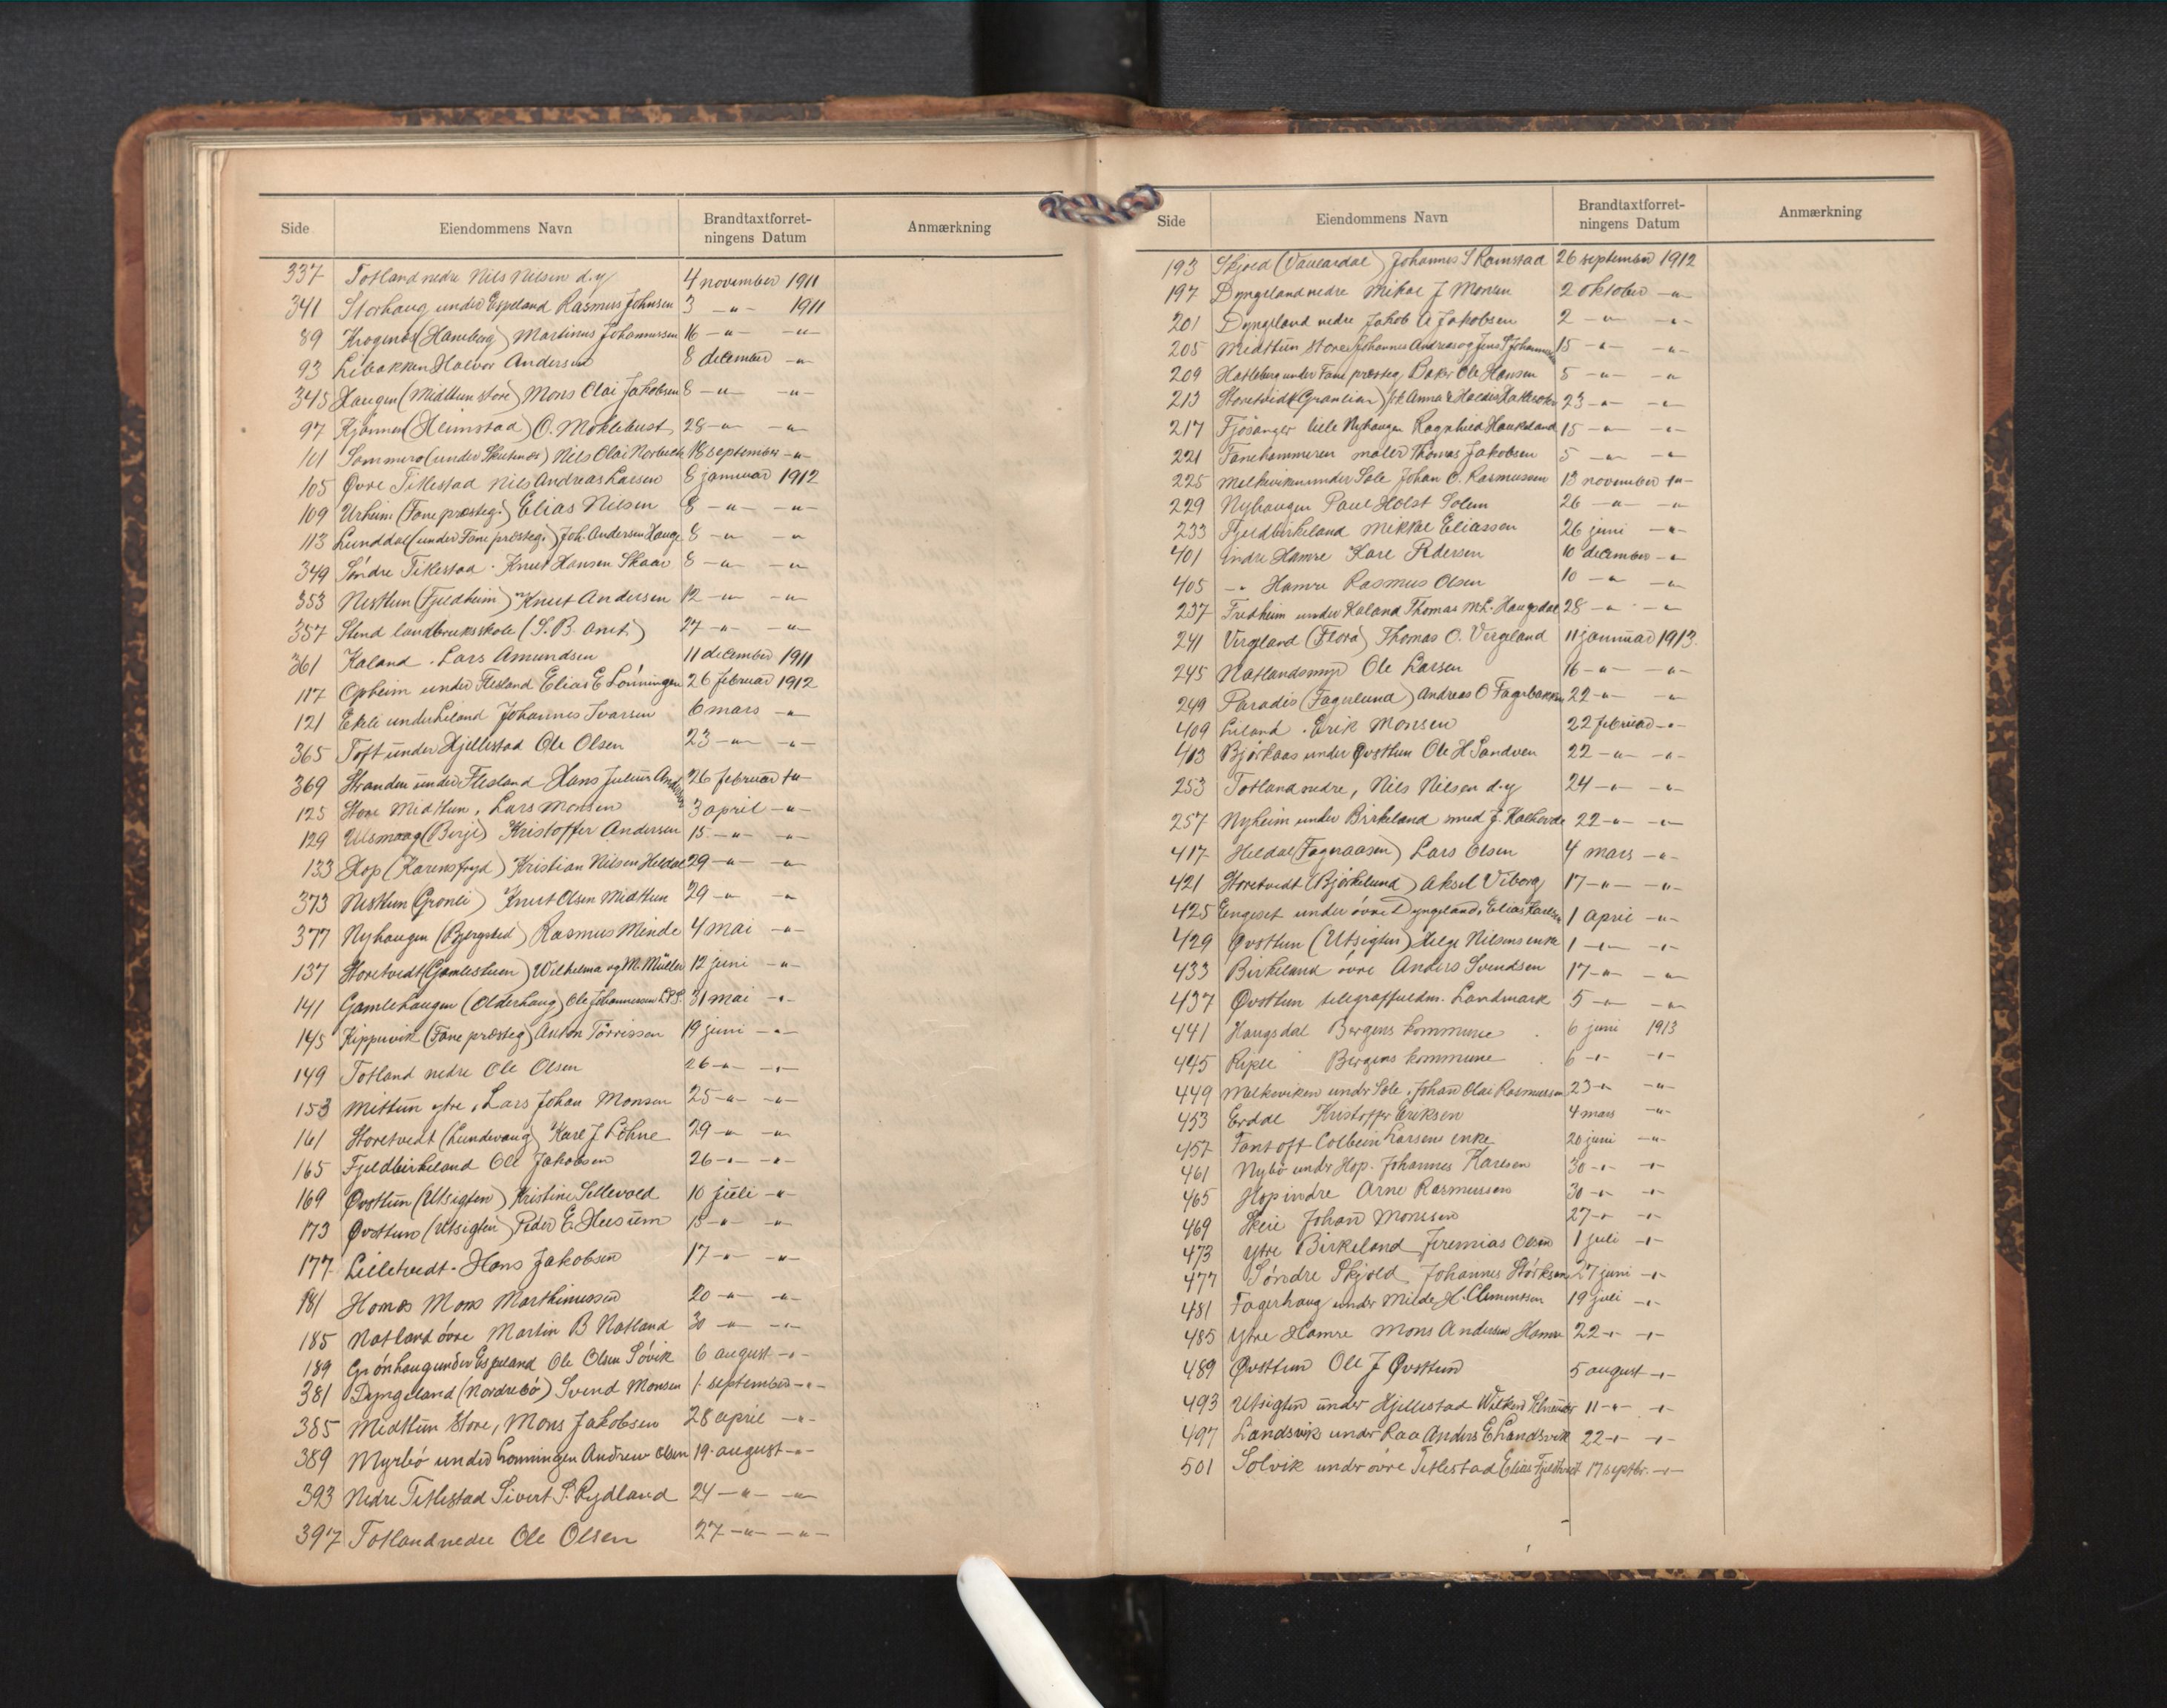 Side Eiendommens Navn Brandtaxtforret-ningens Datum Anmærkning
337 Totland nedre Nils Nilsen d.y 4 november 1911
341 Storhaug under Espeland Rasmus Johnsen 3 -"- 1911
89 Krogenes (Haneberg) Martinus Johannessen 16 -"- -"-
93 Libakken Halvor Andersen 8 december -"-
345 Haugen (Midttun store) Mons Olai Jakobsen 8 -"- -"-
97 (Heimstad) O. Moklebust 28 -"- -"-
101 (under Skutenes) Nils Olai 18 september -"-
105 Øvre Titlestad Nils Andreas Larsen 8 januar 1912
109 Urheim (Fane præsteg.) Elias Nilsen 8 -"- -"-
113 Lunddal (under Fane præsteg.) Joh. Andersen Hauge 8 -"- -"-
349 Söndre Titlestad . Knut Hansen Skaar 8 -"- -"-
353 Nesttun (Fjeldheim) Knut Andersen 12 -"- -"-
357 Stend landbruksskole (S.B. amt.) 27 -"- -"-
361 Kaland . Lars Amundsen 11 december 1911
117 Opheim under Flesland Elias E Lönningen 26 februar 1912
121 Ekeli under Liland Johannes Ivarsen 6 mars -"-
365 Toft under Hjellestad Ole Olsen 23 -"- -"-
369 Stranden under Flesland Hans Julius Andersen 26 februar -"-
125 Store Midttun, Lars Monsen 3 april -"-
129 Ulsmaag (Berje) Kristoffer Andersen 15 -"- -"-
133 Hop (Karensfryd) Kristian Nilsen Heldal 29 -"- -"-
373 Nesttun (Grönli) Knut Olsen Midttun 29 -"- -"-
377 Nyhaugen (Bjergsted) Rasmus Minde 4 mai -"-
137 Storetvedt (Gamlestuen) Wilhelma og M. Müller 12 juni -"-
141 Gamlehaugen (Olderhaug) Ole Johannessen 31 mai -"-
145 Kippervik (Fane præsteg) Anton Törrissen 19 juni -"-
149 Totland nedre Ole Olsen 26 -"- -"-
153 Mittun ytre, Lars Johan Monsen 25 -"- -"-
161 Storetvedt (Lundevang) Karl J Löhne 29 -"- -"-
165 Fjeldbirkeland Ole Jakobsen 26 -"- -"-
169 Øvsttun (Utsigten) Kristine Sellevold 10 juli -"-
173 Øvsttun (Utsigten) Peder E. Heesum 15 -"- -"-
177 Lilletvedt - Hans Jakobsen 17 -"- -"-
181 Homes Mons Marthinussen 20 -"- -"-
185 Natland övre Martin B Natland 30 -"- -"-
189 Grönhaug under Espeland Ole Olsen Sövik 6 august -"-
381 Dyngeland (Nordrebö) Svend Monsen 1 september -"-
385 Midttun Store, Mons Jakobsen 28 april -"-
389 Myrbö under Lönningen Andrew Olsen 19 august -"-
393 Nedre Titlestad Sivert S. Rydland 24 -"- -"-
397 Totland nedre Ole Olsen 27 -"- -"-
Side Eiendommens Navn Brandtaxtforret-ningens Datum Anmærkning
193 Skjold (Vallardal) Johannes S Ramstad 26 september 1912
197 Dyngeland nedre Mikal J Monsen 2 oktober -"-
201 Dyngeland nedre Jakob A Jakobsen 2 -"- -"-
205 Midttun Store Johannes Andreas og Jens S Johannes 15 -"- -"-
209 Hatleberg under Fane præsteg. Baker Ole Hansen 5 -"- -"-
213 Storetvedt (Granlien) Anna & Haldis 23 -"- -"-
217 Fjösanger lille Nyhaugen Ragnhild Haukeland 15 -"- -"-
221 Fanehammeren maler Thomas Jakobsen 5 -"- -"-
225 Melkeviken under Söle Johan O. Rasmussen 13 november -"-
229 Nyhaugen Paul Holst Solem 26 -"- -"-
233 Fjeldbirkeland Mikkal Eliassen 26 juni -"-
401 Indre Hamre Karl Pedersen 10 december -"-
405 -"- Hamre Rasmus Olsen 10 -"- -"-
237 Fredheim under Kaland Thomas M.L. Haugsdal 28 -"- -"-
241 Vergland (Flora) Thomas O. Vergland 11 januar 1913.
245 Natlandsmyr Ole Larsen 16 -"- -"-
249 Paradis (Fagerlund) Andreas O Fagerbakken 22 -"- -"-
409 Liland . Erik Monsen 22 februar -"-
413 Björkaas under Øvsttun Ole H Sandven 22 -"- -"-
253 Totland nedre, Nils Nilsen d.y 24 -"- -"-
257 Nyheim under Birkeland smed J. Kalhovde 22 -"- -"-
417 Heldal (Fageraasen) Lars Olsen 4 mars -"-
421 Storetvedt (Björkelund) Aksel Viborg 17 -"- -"-
425 Eengeset under övre Dyngeland, Elias Karlsen 1 april -"-
429 Øvsttun (Utsigten) Helge Nilsens enke 1 -"- -"-
433 Birkeland övre Anders Svendsen 17 -"- -"-
437 Øvsttun telegraffuldm. Landmark 5 -"- -"-
441 Haugsdal Bergens kommune 6 juni 1913
445 Riple Bergens kommune 6 -"- -"-
449 Melkeviken under Söle, Johan Olai Rasmussen 23 -"- -"-
453 Erdal Kristoffer Eriksen 4 mars -"-
457 Fantoft Colbein Larsens enke 20 juni -"-
461 Nybö under Hop. Johannes Karlsen 30 -"- -"-
465 Hop indre Arne Rasmussen 30 -"- -"-
469 Skeie Johan Monsen 27 -"- -"-
473 Ytre Birkeland Jeremias Olsen 1 juli -"-
477 Söndre Skjold Johannes Störksen 27 juni -"-
481 Fagerhaug under Milde H. Clementsen 19 juli -"-
485 Ytre Hamre Mons Andersen Hamre 22 -"- -"-
489 Øvsttun Ole J Øvsttun 5 august -"-
493 Utsigten under Hjellestad 11 -"- -"-
497 Landsvik under Raa Anders E Landsvik 22 -"- -"-
501 Solvik under övre Titlestad Elias Fjeldtvedt 17 septbr. -"-